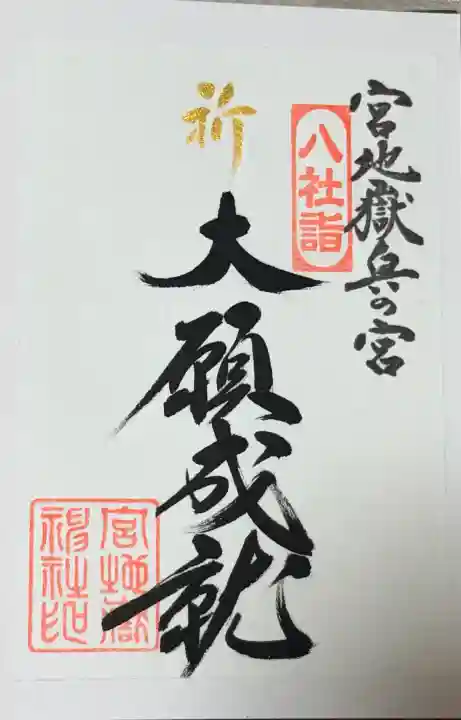 宮地嶽奥の宮
八社詣
祈
大願成就
宮地嶽
神社印